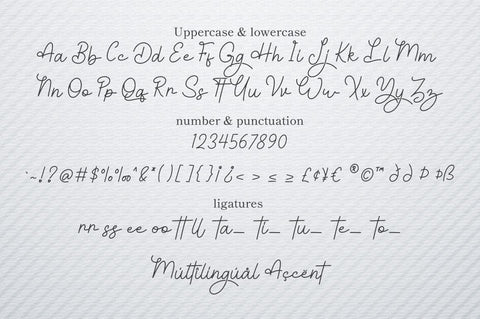 Uppercase & lowercase
Aa Bb Cc Dd Ee Ff Gg Hh Ii Jj Kk Ll Mm
Nn Oo Pp Qq Rr Ss Tt Uu Vv Ww Xx Yy Zz
number & punctuation
1234567890
`~!?@#$%‰^&*()[]{}¡¿<> ≤ ≥ £¢¥€ ®©™ Þ þß
ligatures
rr ss ee oo tt ll ta_ ti_ tu_ te_ to_
Múltilingúál Açcënt